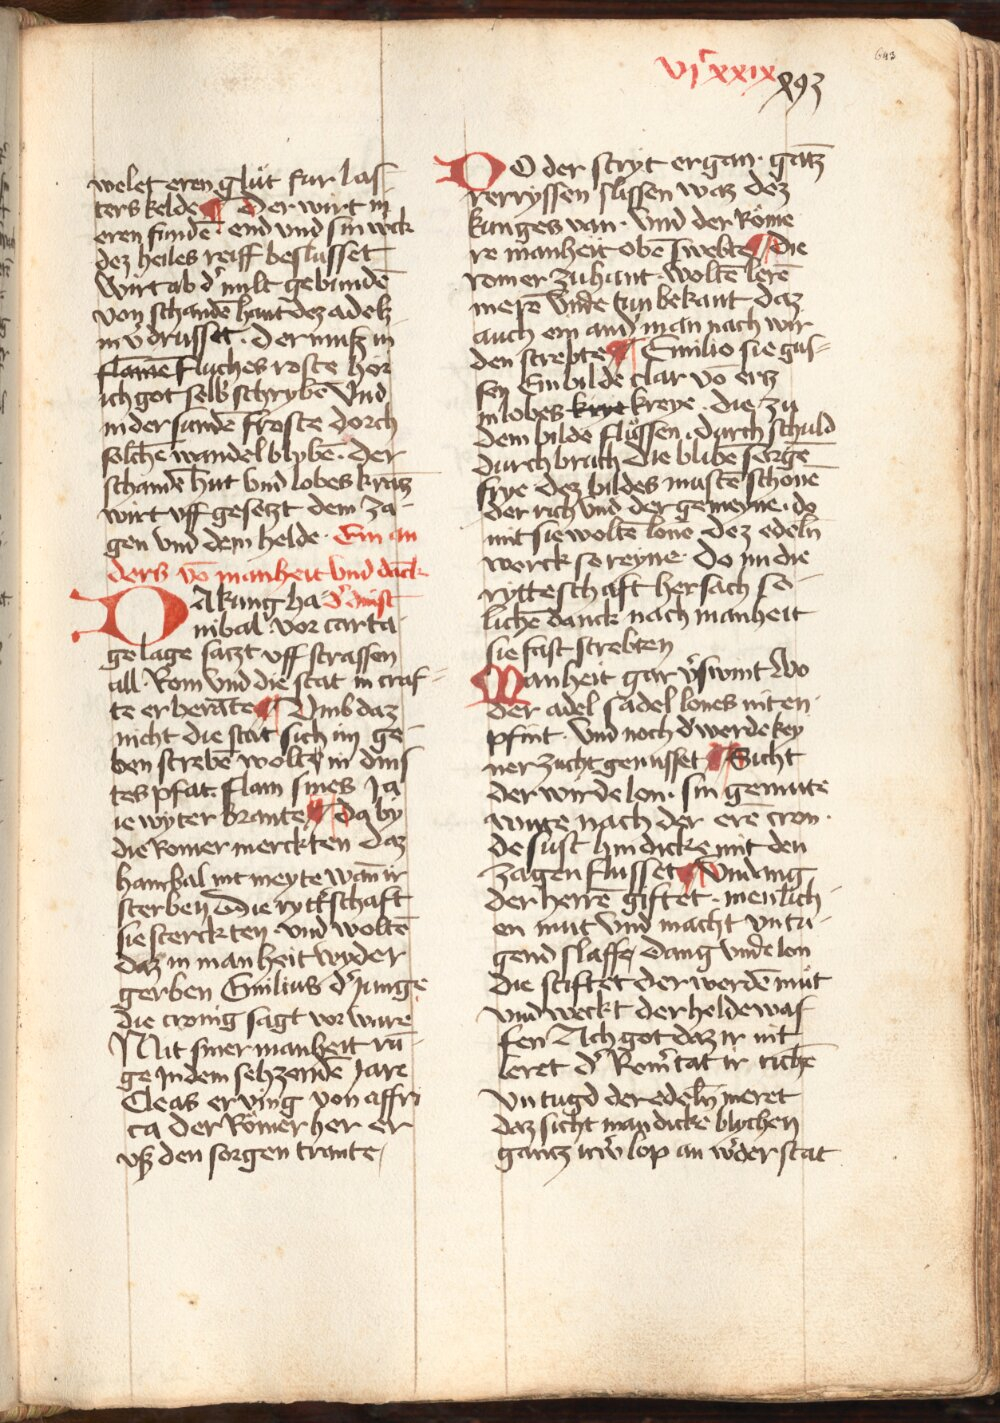 643
VIᶜ xxix
welet eren glüt fur las
ters kelde Der wirt in
eren funden end vnd sin wck
dez heiles reiff beslusset
Wirt ab d' milt gebunden
von schanden hant dez adels
in v'drusset . Der muß in
flamē fluches roste hor
ich got selb' schrybē Vnd
in der sundē froste dorch
solchē wandel blybē . Der
schandē hut vnd lobes krātz
wirt vff gesetzt dem za-
gen vnd dem helde . Ein an
ders vō manheit vnd dāck
DA kung ha d' dinst
nibal vor carta
ge lage satzt vff strassen
all Rom vnd die stat in craf-
te er berāte Vmb daz
nicht die stat sich im ge-
ben strebē wolte in dins
tes pfat . flam sines Ja
ie wyter brante da by
die Romer merckten daz
hanibal nit meyte wān ir
sterben Die ryt'schaft
sie sterckten vnd woltē
daz in manheit wyder
gerben Emilius d' junge
die cronig sagt vor ware
Mit siner manheit rū-
ge in dem sehzendē jare
Cleas er ving von affri
ca der Römer her er
vß den sorgen trante
DO der stryt ergan . gātz
rerryssen slissen waz dez
kunges van . Vnd der Röme
re manheit obē swebte Die
romer zu hant woltē lerē
mere vnde tun bekant daz
auch ein and' man nach wir-
den strebte Emilio sie gus-
sen Ein bilde clar vō ertz
in lobes kreye . die zu
dem bilde flüssen . durch schuld
durch bruch die blibē sorgē
frye dez bildes mustē schonē
der rich vnd der gemeyne . do
mit sie woltē lone dez edeln
werck so reyne . Do nu die
rytteschaft her sach so-
lichē danck nach manheit
sie fast strebten
Manheit gar v'swint Wo
der adel sadel lones nit en-
pfint . Vnd noch d' werde key
ner zucht genusset Sicht
der wirde lon . sin gemute
wute nach der erē cron .
de sust hin dicke mit den
zagen flusset Vndang
der herrē giftet . menlich-
en mut vnd macht vntu-
gend slaffe dang vnde lon
die stiftet der werdē müt
vnd weckt der helde waf
fen Ach got daz ir nit
leret d' Rom' tat ir richē
Vntugd der edeln meret
daz sicht man dicke blychen
gantz lop an w'der stat